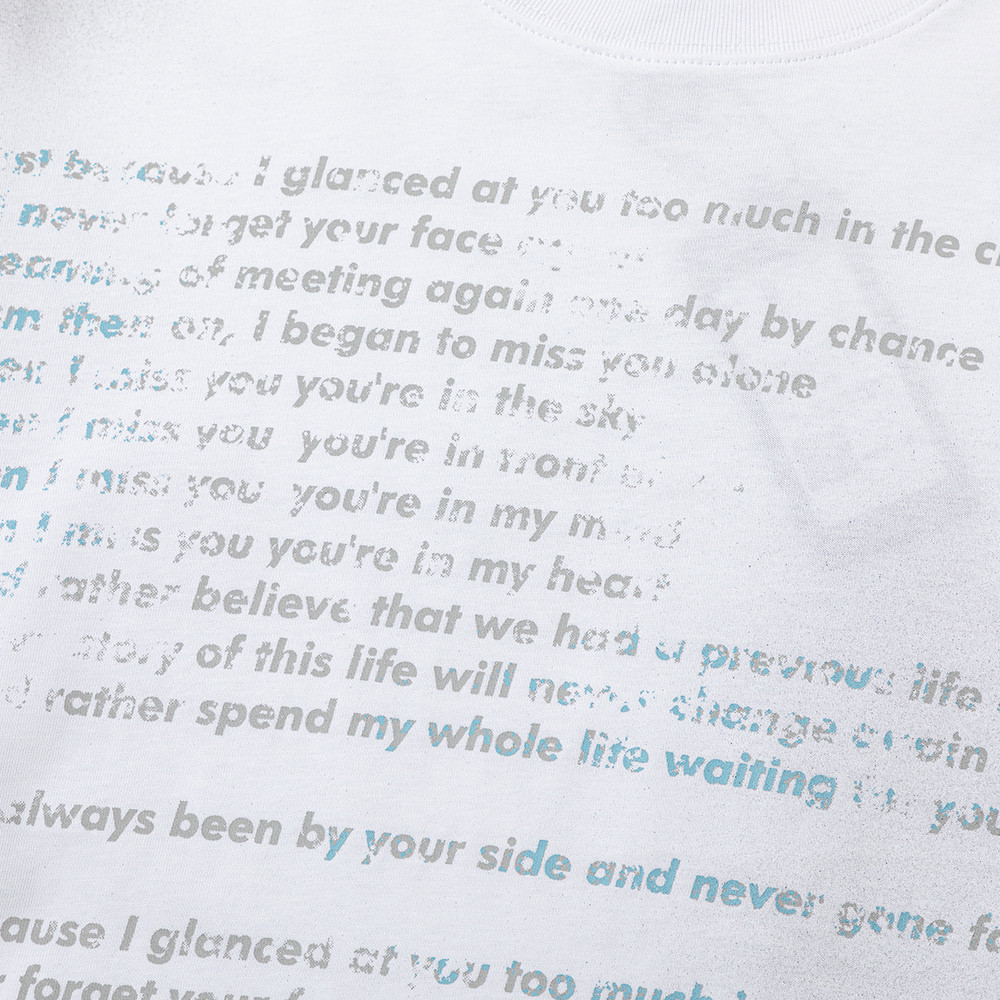 because I glanced at you too much in the
I never forget your face
of meeting again one day by chance
then on, I began to miss you alone
I miss you you're in the sky
I miss you you're in front
I miss you you're in my mind
I miss you you're in my heart
rather believe that we had a previous life
story of this life will never change again
rather spend my whole life waiting for you
always been by your side and never gone
I glanced at you too much
forget your